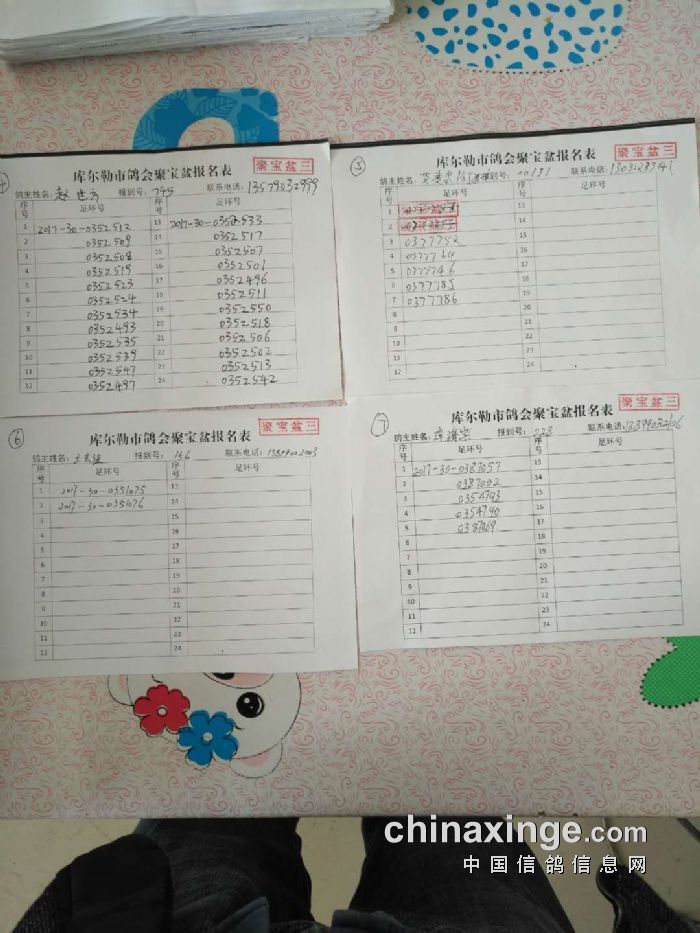 4
库尔勒市鸽会聚宝盆报名表
聚宝盆三
鸽主姓名: 赵世方 报到号: 745 联系电话: 13579032999
序号 足环号 序号 足环号
1 2017-30-0352512 13 2017-30-0352533
2 0352509 14 0352517
3 0352508 15 0352507
4 0352519 16 0352501
5 0352523 17 0352496
6 0352524 18 0352511
7 0352534 19 0352550
8 0352493 20 0352518
9 0352535 21 0352506
10 0352539 22 0352502
11 0352547 23 0352513
12 0352497 24 0352542
5
库尔勒市鸽会聚宝盆报名表
聚宝盆三
鸽主姓名: 报到号: 00181 联系电话:
序号 足环号 序号 足环号
1 13
2 14
3 0377752 15
4 0377764 16
5 0377746 17
6 0377785 18
7 0377786 19
8 20
9 21
10 22
11 23
12 24
6
库尔勒市鸽会聚宝盆报名表
聚宝盆三
鸽主姓名: 报到号: 156 联系电话: 13899002003
序号 足环号 序号 足环号
1 2017-30-0351075 13
2 2017-30-0351076 14
3 15
4 16
5 17
6 18
7 19
8 20
9 21
10 22
11 23
12 24
7
库尔勒市鸽会聚宝盆报名表
聚宝盆三
鸽主姓名: 报到号: 228 联系电话: 13899032106
序号 足环号 序号 足环号
1 2017-30-0387057 13
2 0387002 14
3 0354793 15
4 0354790 16
5 0387069 17
6 18
7 19
8 20
9 21
10 22
11 23
12 24
chinaxinge.com
中国信鸽信息网